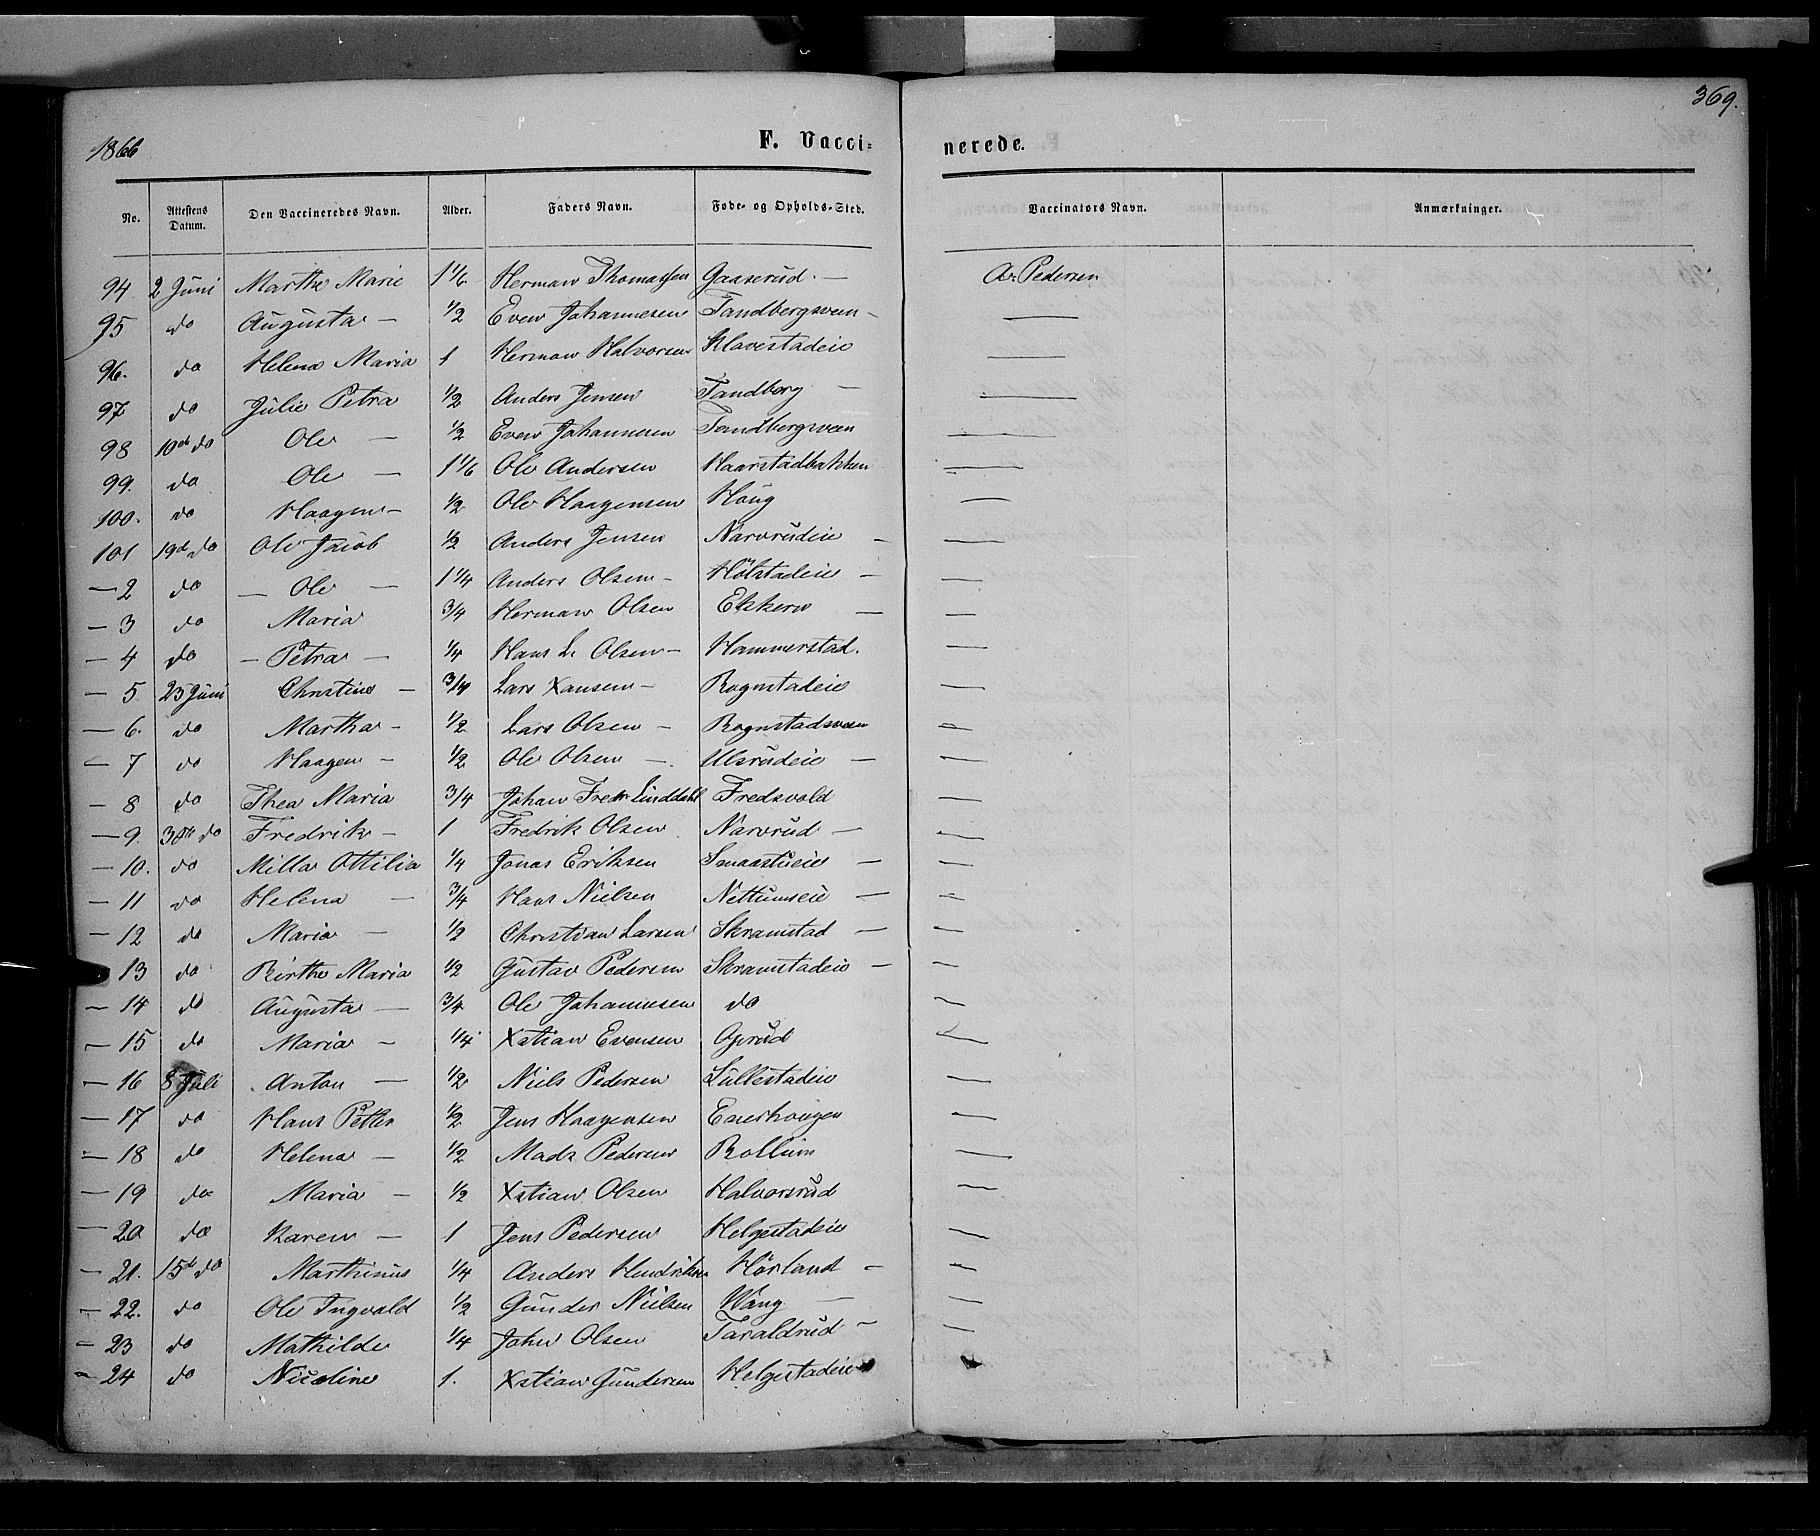 369.
1866
F. Vacci-
nerede.
No. Attestens Datum. Den Vaccineredes Navn. Alder. Faders Navn. Føde- og Opholds-Sted. Vaccinators Navn. Anmærkninger.
94 2 Juni Marthe Marie 1 1/6 Herman Thomassen Gaaserud - A. Pedersen
95 do Augusta - 1/2 Even Johannesen Tandbergsveen - —
96. do Helena Maria 1 Herman Halvorsen Klavestadeie —
97 do Julie Petra 1/2 Anders Jensen Tandberg - —
98 10de do Ole - 1/2 Even Johannesen Tandbergsveen —
99. do Ole - 1 1/6 Ole Andersen Haarstadbakken —
100. do Haagen - 1/2 Ole Haagensen Houg —
101 19d do Ole Jacob 1/2 Anders Jensen Narvrudeie - —
- 2 do - Ole - 1 1/4 Anders Olsen - Holstadeie - —
- 3 do Maria 3/4 Herman Olsen Ekkern - —
- 4 do - Petra - 1/4 Hans L. Olsen - Hammerstad. —
- 5 23 Juni Christine - 3/4 Lars Xansen - Rognstadeie —
- 6. do Martha - 1/2 Lars Olsen - Rognstadsveen —
- 7 do Haagen - 1/2 Ole Olsen - Ulsrudeie - —
- 8 do Thea Maria 3/4 Johan Fredr. Linddahl Fredsvold —
- 9. 30te do Fredrik - 1 Fredrik Olsen Narvrud - —
- 10. do Milla Ottilia 1/4 Jonas Eriksen Smaastueie - —
- 11 do Helena - 3/4 Hans Nielsen Nettumseie - —
- 12 do Maria - 1/2 Christian Larsen Skramstad - —
- 13 do Birthe Maria 1/2 Gustav Pedersen Skramstadeie - —
- 14 do Augusta - 3/4 Ole Johannesen do —
- 15 do Maria - 1/4 Xstian Evensen Opsrud —
- 16 8 Juli Anton - 1/2 Niels Pedersen Lullestadeie —
- 17 do Hans Petter 1/2 Jens Haagensen Enerhougen —
- 18 do Helena - 1/2 Mads Pedersen Rollum —
- 19 do Maria - 1/2 Xstian Olsen Halvorsrud —
- 20 do Karen - 1 Jens Pedersen Helgestadeie —
- 21. 15d do Marthinus 1/4 Anders Hendriksen Horland - —
- 22. do Ole Ingvald 1/2 Gunder Nielsen Wang - —
- 23 do Mathilde 1/4 Johan Olsen Taraldrud - —
- 24 do Nicoline 1. Xstian Gundersen Helgestadeie —